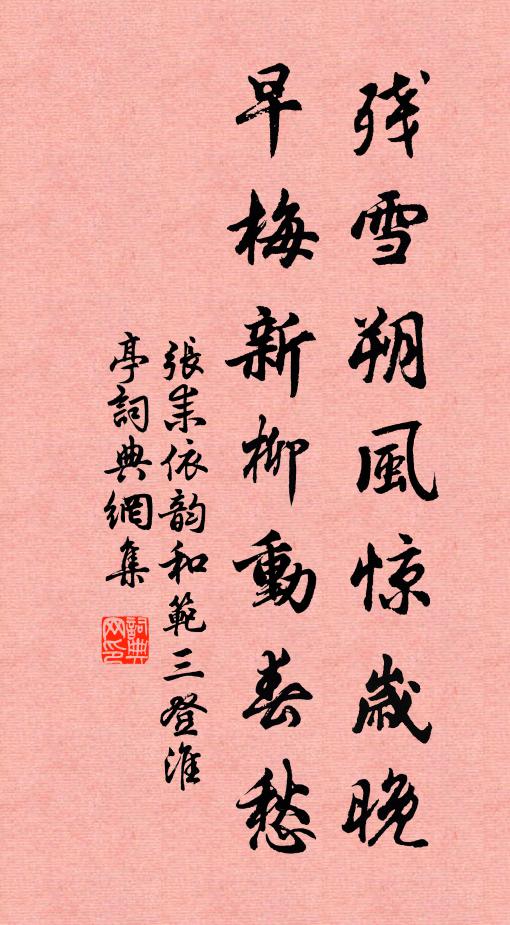 残雪朔風惊歲晚
早梅新柳動春愁
張耒依韵和範三登淮
亭詞典網集
詞典网印